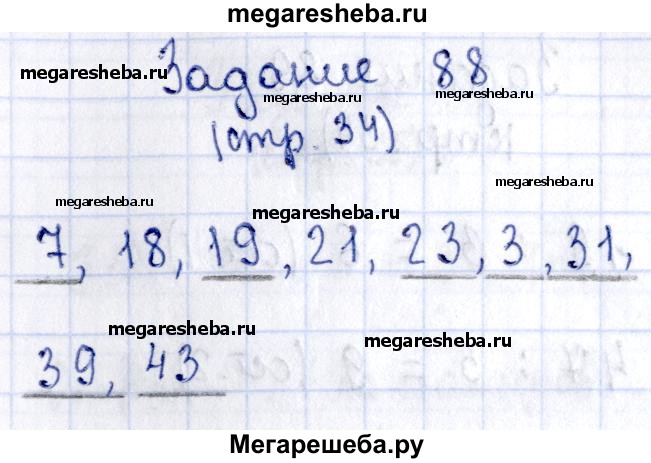 megaresheba.ru
megaresheba.ru
Задание 88
megaresheba.ru
megaresheba.ru
(стр. 34)
megaresheba.ru
megaresheba.ru
megaresheba.ru
megaresheba.ru
7, 18, 19, 21, 23, 3, 31,
megaresheba.ru
megaresheba.ru
39, 43
Мегарешеба.ру